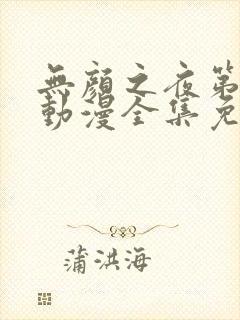 無顏之夜第
動漫全集免
蒲洪海